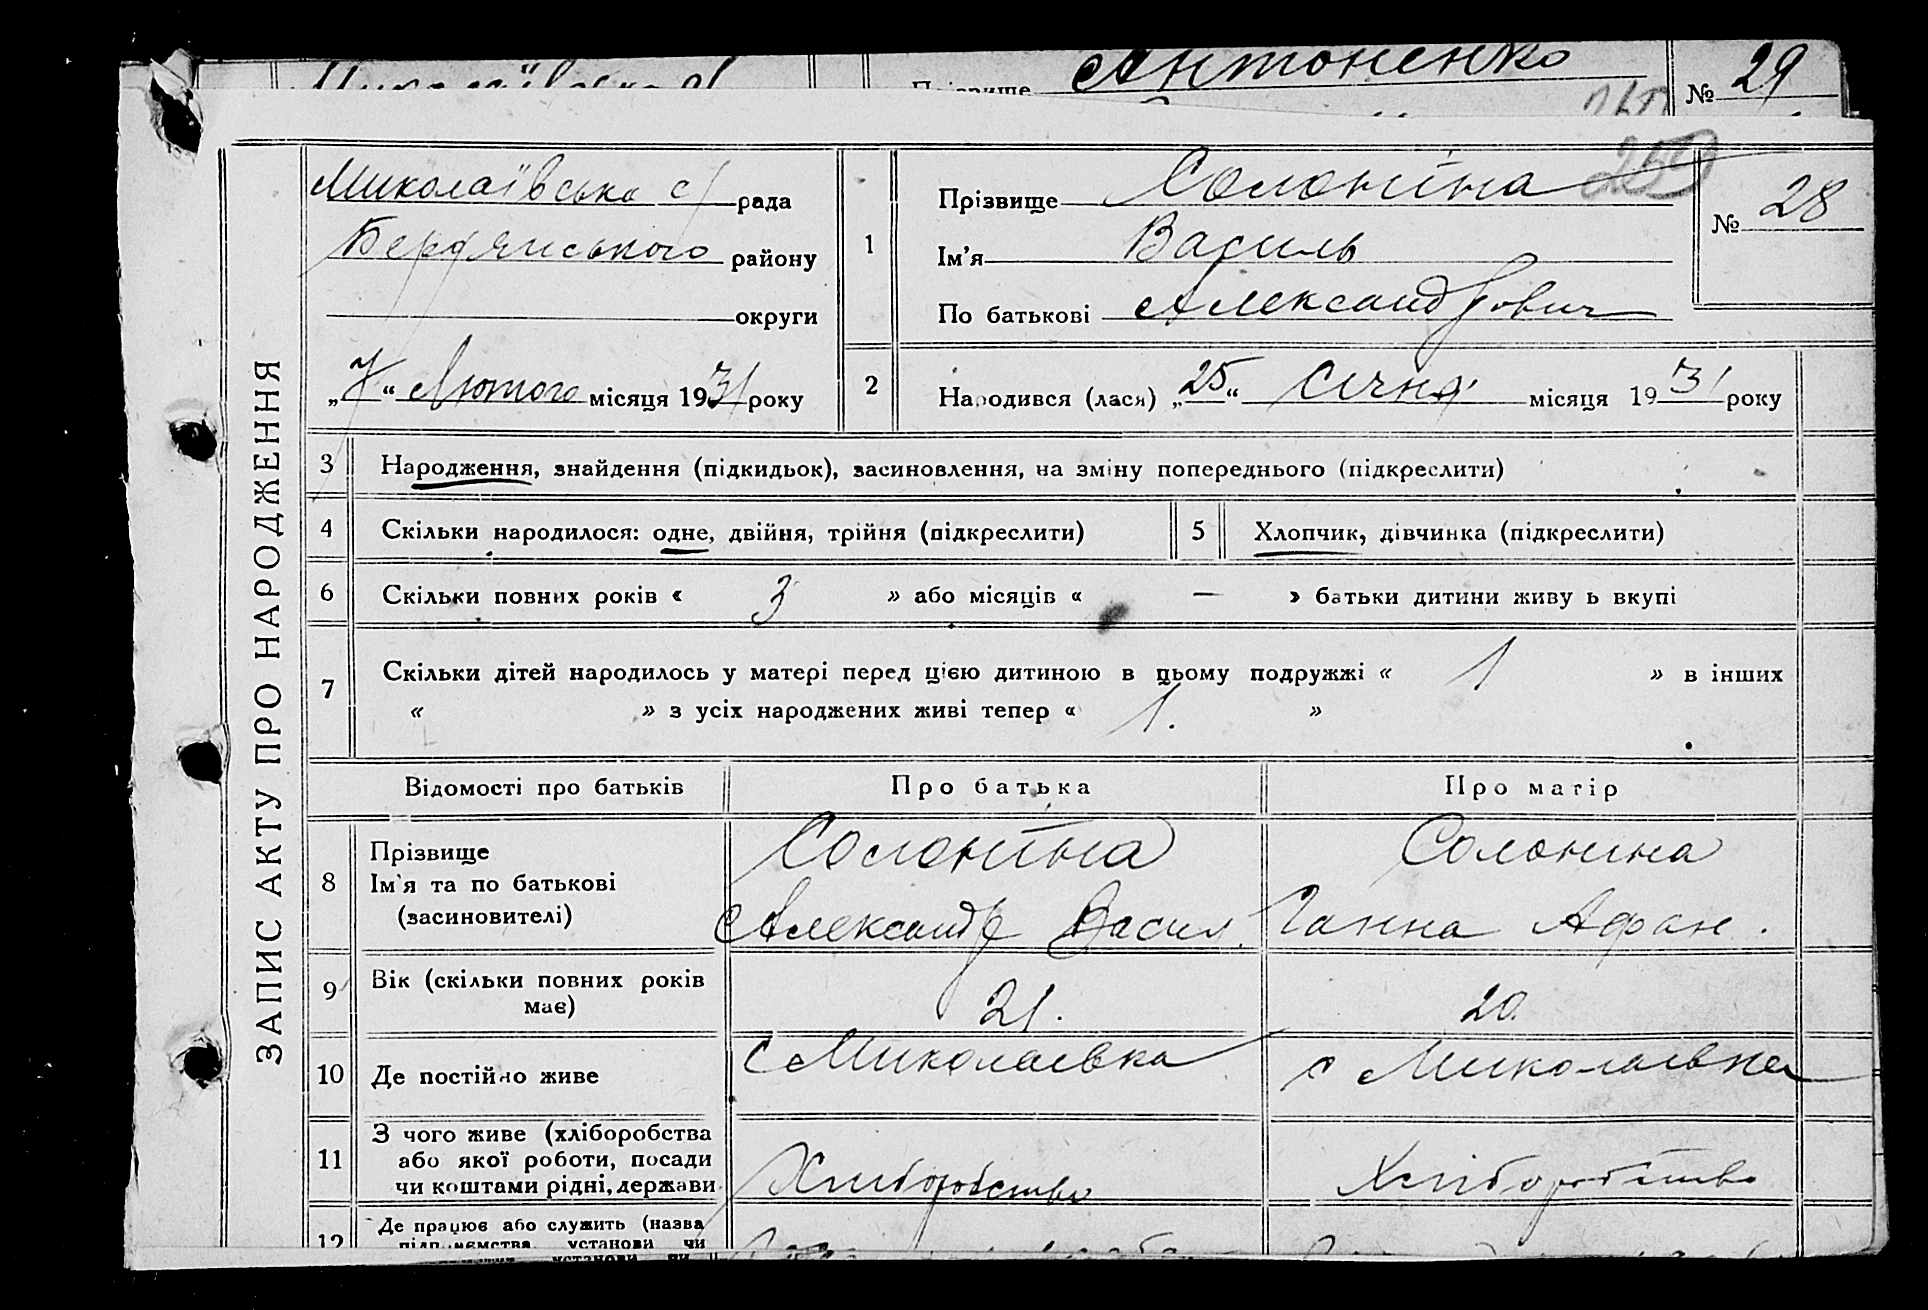 Антоненко
№ 29
ЗАПИС АКТУ ПРО НАРОДЖЕННЯ
Миколаївська с/рада
Бердянського району
округи
„7“ Лютого місяця 1931 року
1
Прізвище Солоніна
Ім'я Василь
По батькові Александрович
259
№ 28
2
Народився (лася) „25“ Січня місяця 1931 року
3 Народження, знайдення (підкидьок), засиновлення, на зміну попереднього (підкреслити)
4 Скільки народилося: одне, двійня, трійня (підкреслити) 5 Хлопчик, дівчинка (підкреслити)
6 Скільки повних років « 3 » або місяців « — » батьки дитини живу ь вкупі
7 Скільки дітей народилось у матері перед цією дитиною в цьому подружжі « 1 » в інших
« » з усіх народжених живі тепер « 1. »
Відомості про батьків Про батька Про матір
8 Прізвище
Ім'я та по батькові
(засиновителі)
Солоніна
Александр Васил.
Солонина
Ганна Афан.
9 Вік (скільки повних років
має)
21. 20.
10 Де постійно живе с Миколаевка с Миколаевка
11 З чого живе (хліборобства
або якої роботи, посади
чи коштами рідні, держави
Хліборобство Хліборобство
12 Де працює або служить (назва
підприємства, установи чи